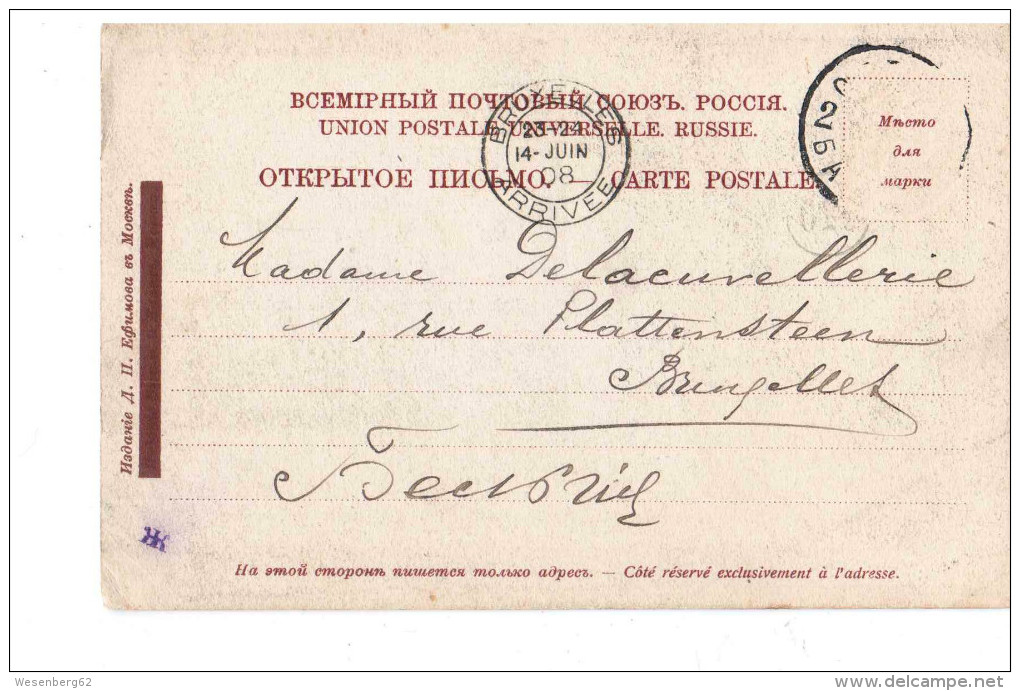 ВСЕМІРНЫЙ ПОЧТОВЫЙ СОЮЗЪ. РОССІЯ.
UNION POSTALE UNIVERSELLE. RUSSIE.
ОТКРЫТОЕ ПИСЬМО. — CARTE POSTALE
BRUXELLES
23-24
14-JUIN
08
ARRIVEE
Мѣсто
для
марки
Madame Delacuvellerie
1, rue Plattensteen
Bruxelles
Бельгія
Изданіе Д. П. Ефимова въ Москвѣ.
Ж
На этой сторонѣ пишется только адресъ. — Côté réservé exclusivement à l'adresse.
Wesenberg62
delcampe.net